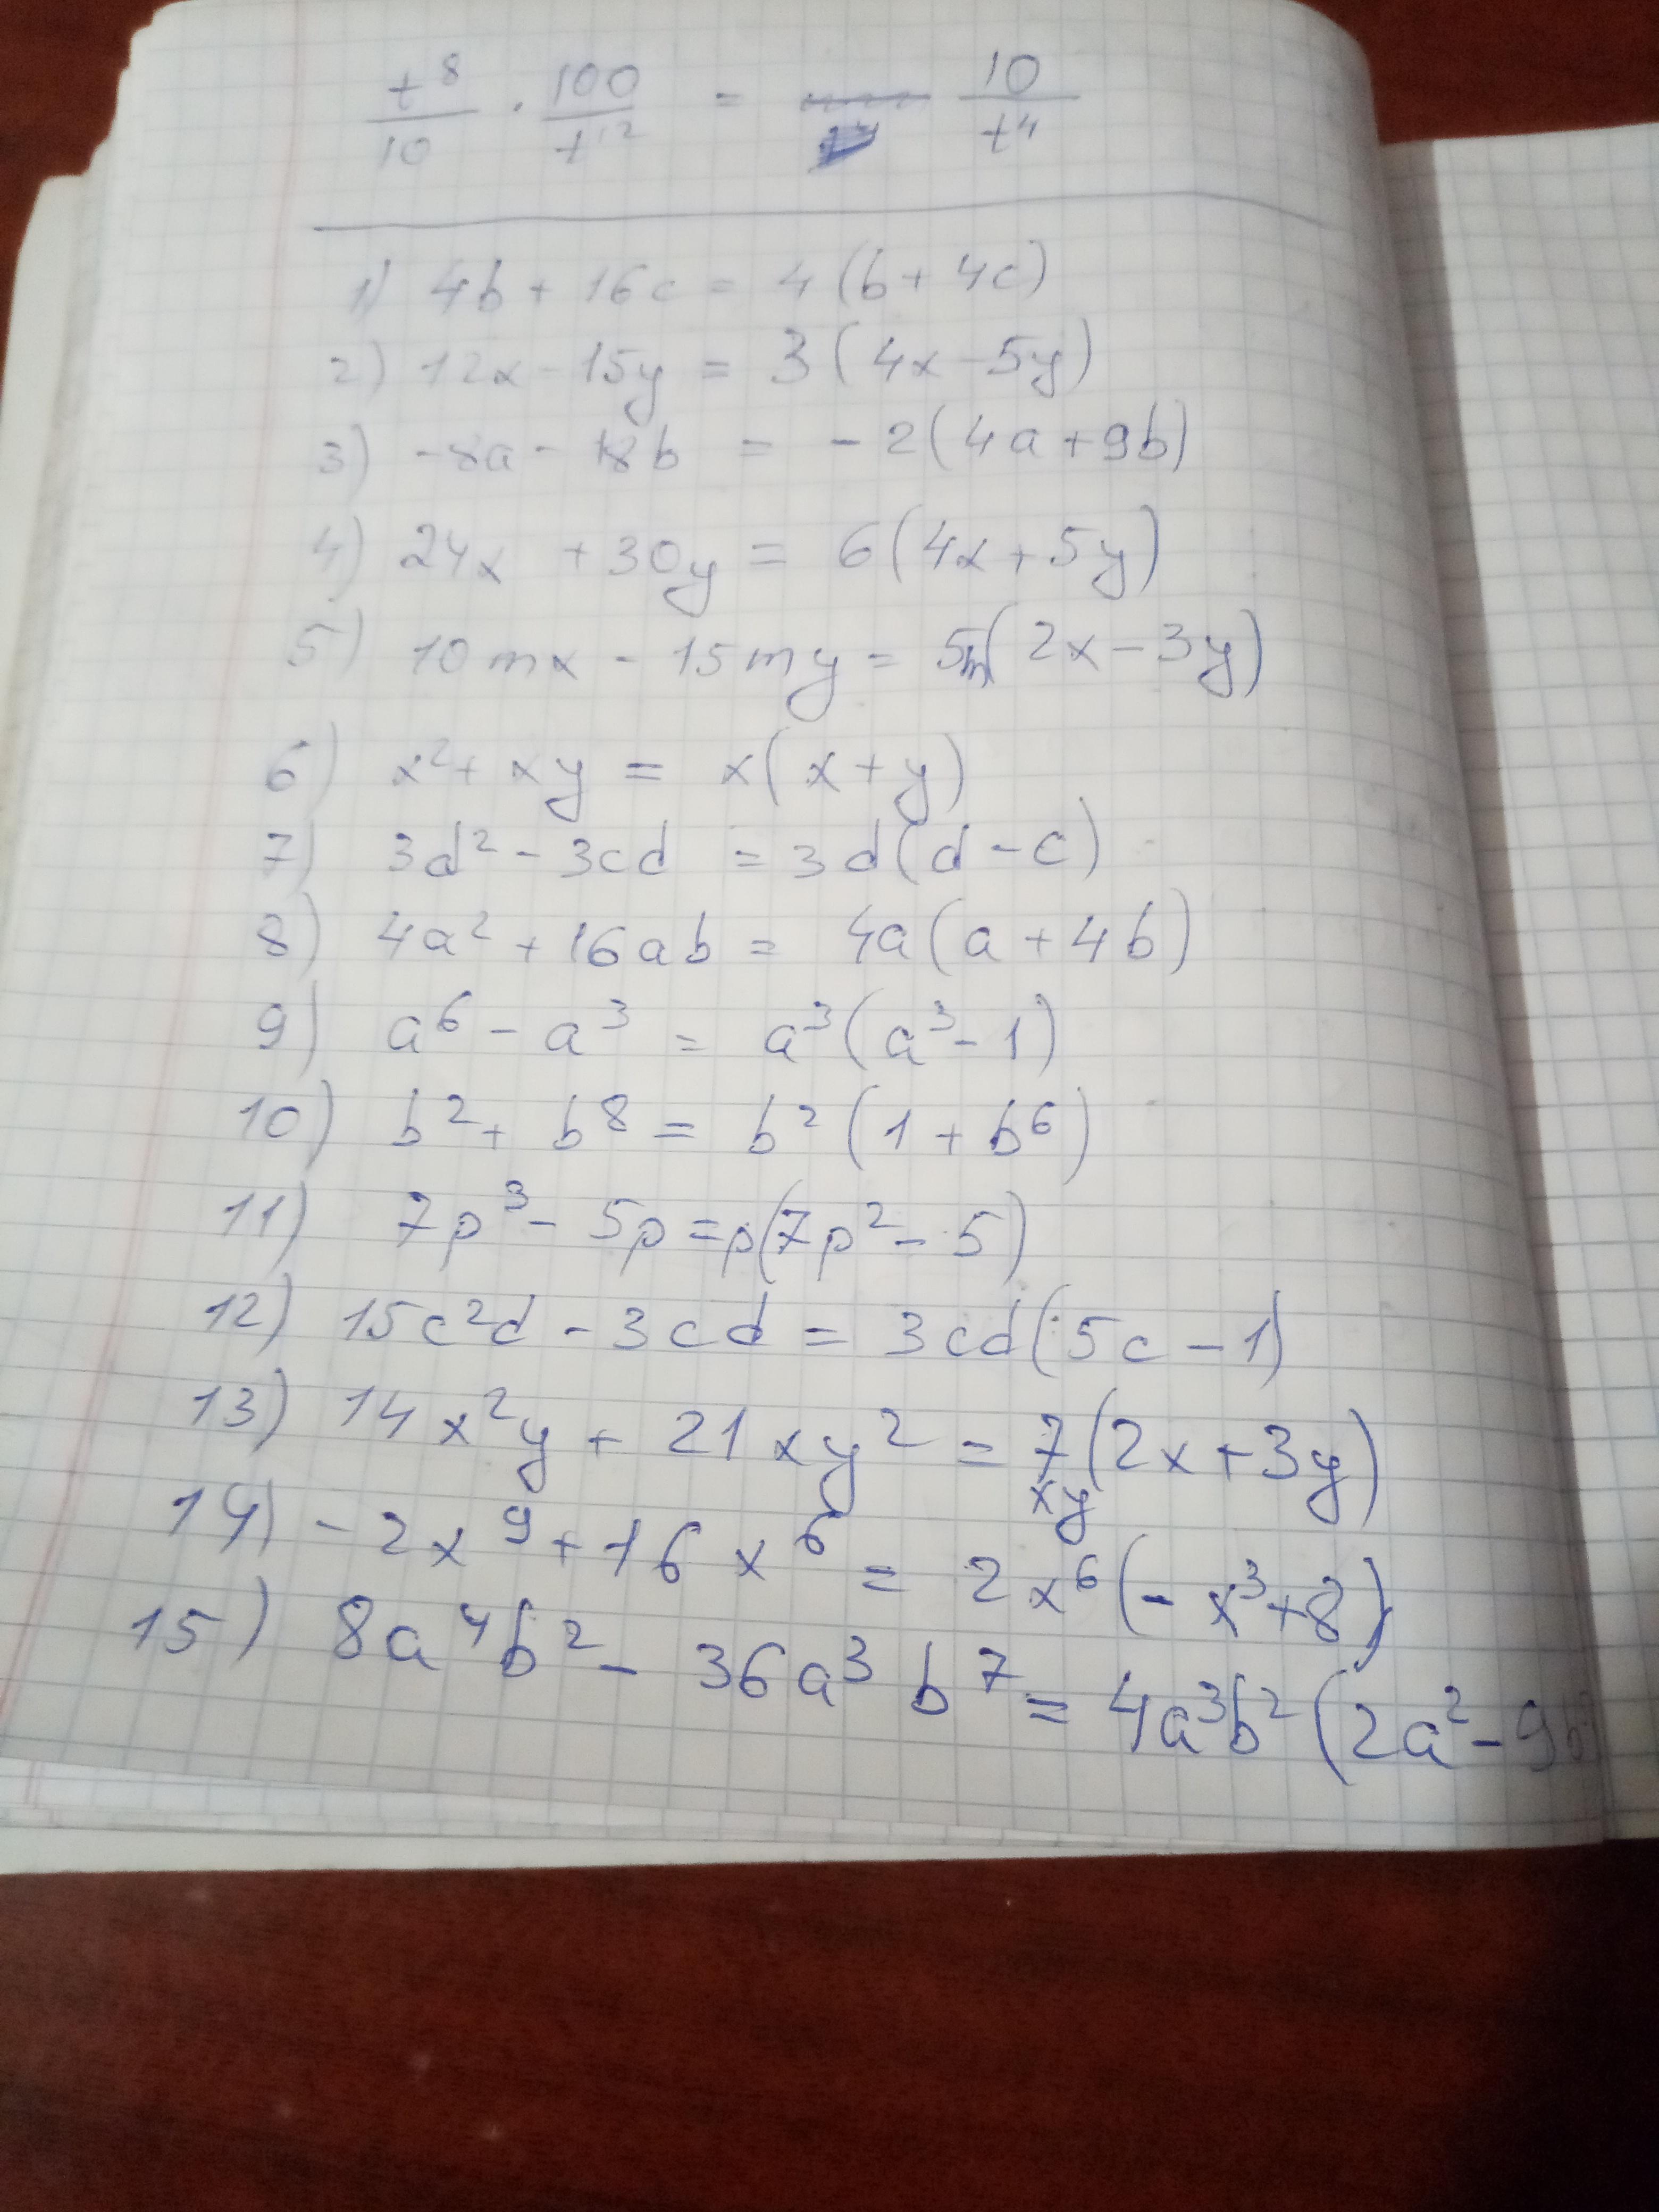 t⁸/10 · 100/t¹² = 10/t⁴
1) 4b + 16c = 4(b + 4c)
2) 12x - 15y = 3(4x - 5y)
3) -8a - 18b = -2(4a + 9b)
4) 24x + 30y = 6(4x + 5y)
5) 10mx - 15my = 5m(2x - 3y)
6) x² + xy = x(x + y)
7) 3d² - 3cd = 3d(d - c)
8) 4a² + 16ab = 4a(a + 4b)
9) a⁶ - a³ = a³(a³ - 1)
10) b² + b⁸ = b²(1 + b⁶)
11) 7p³ - 5p = p(7p² - 5)
12) 15c²d - 3cd = 3cd(5c - 1)
13) 14x²y + 21xy² = 7xy(2x + 3y)
14) -2x⁹ + 16x⁶ = 2x⁶(-x³ + 8)
15) 8a⁴b² - 36a³b⁷ = 4a³b²(2a² - 9b